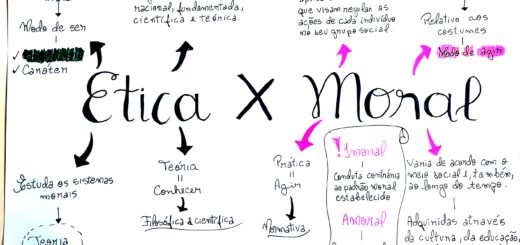 Modo de ser
✓ Caráter
racional, fundamentada,
científica e teórica.
que visam regular as
ações de cada indivíduo
no seu grupo social.
Relativo aos
costumes
Modo de agir
Ética X Moral
Estuda os sistemas
morais
Teoria
Teoria
||
Conhecer
Filosófica e científica
Prática
||
Agir
Normativa
! Imoral
Conduta contrária
ao padrão moral
estabelecido
Amoral
Varia de acordo com o
meio social e, também,
ao longo do tempo.
Adquiridas através
da cultura, da educação,